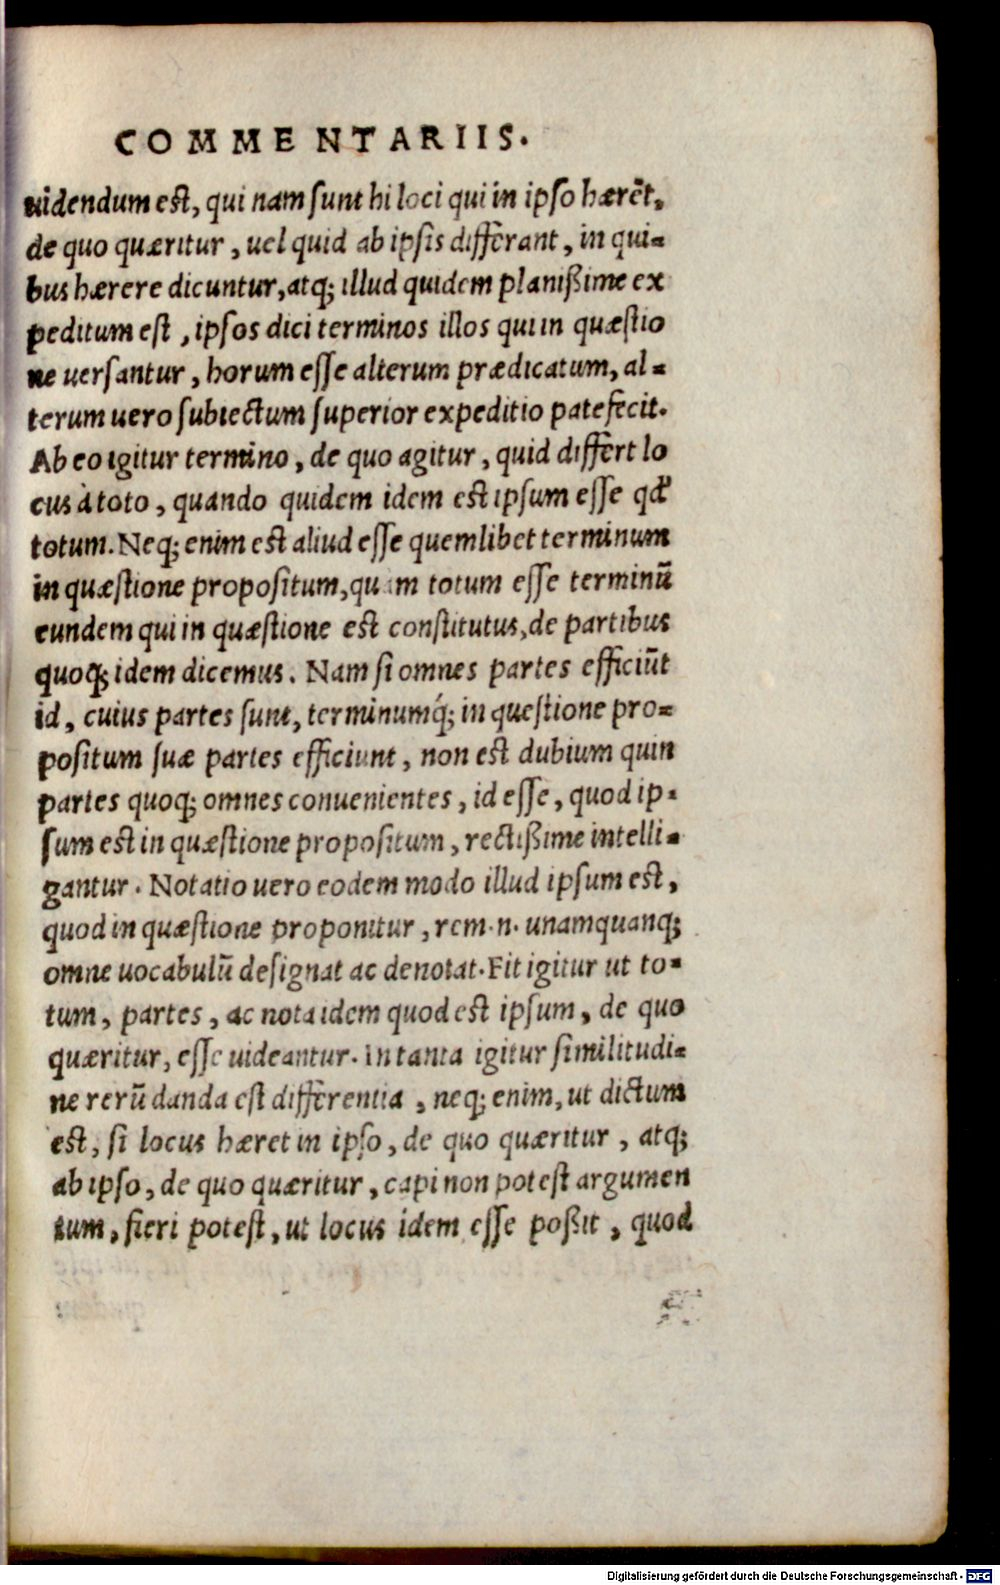 COMMENTARIIS.
uidendum est, qui nam sunt hi loci qui in ipso hærēt,
de quo quæritur, uel quid ab ipsis differant, in qui-
bus hærere dicuntur, atq; illud quidem planißime ex
peditum est, ipsos dici terminos illos qui in quæstio
ne uersantur, horum esse alterum prædicatum, al-
terum uero subiectum superior expeditio patefecit.
Ab eo igitur termino, de quo agitur, quid differt lo
cus à toto, quando quidem idem est ipsum esse qđ
totum. Neq; enim est aliud esse quemlibet terminum
in quæstione propositum, quam totum esse terminū
eundem qui in quæstione est constitutus, de partibus
quoq; idem dicemus. Nam si omnes partes efficiūt
id, cuius partes sunt, terminumq́; in questione pro-
positum suæ partes efficiunt, non est dubium quin
partes quoq; omnes conuenientes, id esse, quod ip-
sum est in quæstione propositum, rectißime intelli-
gantur. Notatio uero eodem modo illud ipsum est,
quod in quæstione proponitur, rem.n. unamquanq;
omne uocabulū designat ac denotat. Fit igitur ut to-
tum, partes, ac nota idem quod est ipsum, de quo
quæritur, esse uideantur. In tanta igitur similitudi-
ne rerū danda est differentia, neq; enim, ut dictum
est, si locus hæret in ipso, de quo quæritur, atq;
ab ipso, de quo quæritur, capi non potest argumen
tum, fieri potest, ut locus idem esse poßit, quod
Digitalisierung gefördert durch die Deutsche Forschungsgemeinschaft - DFG